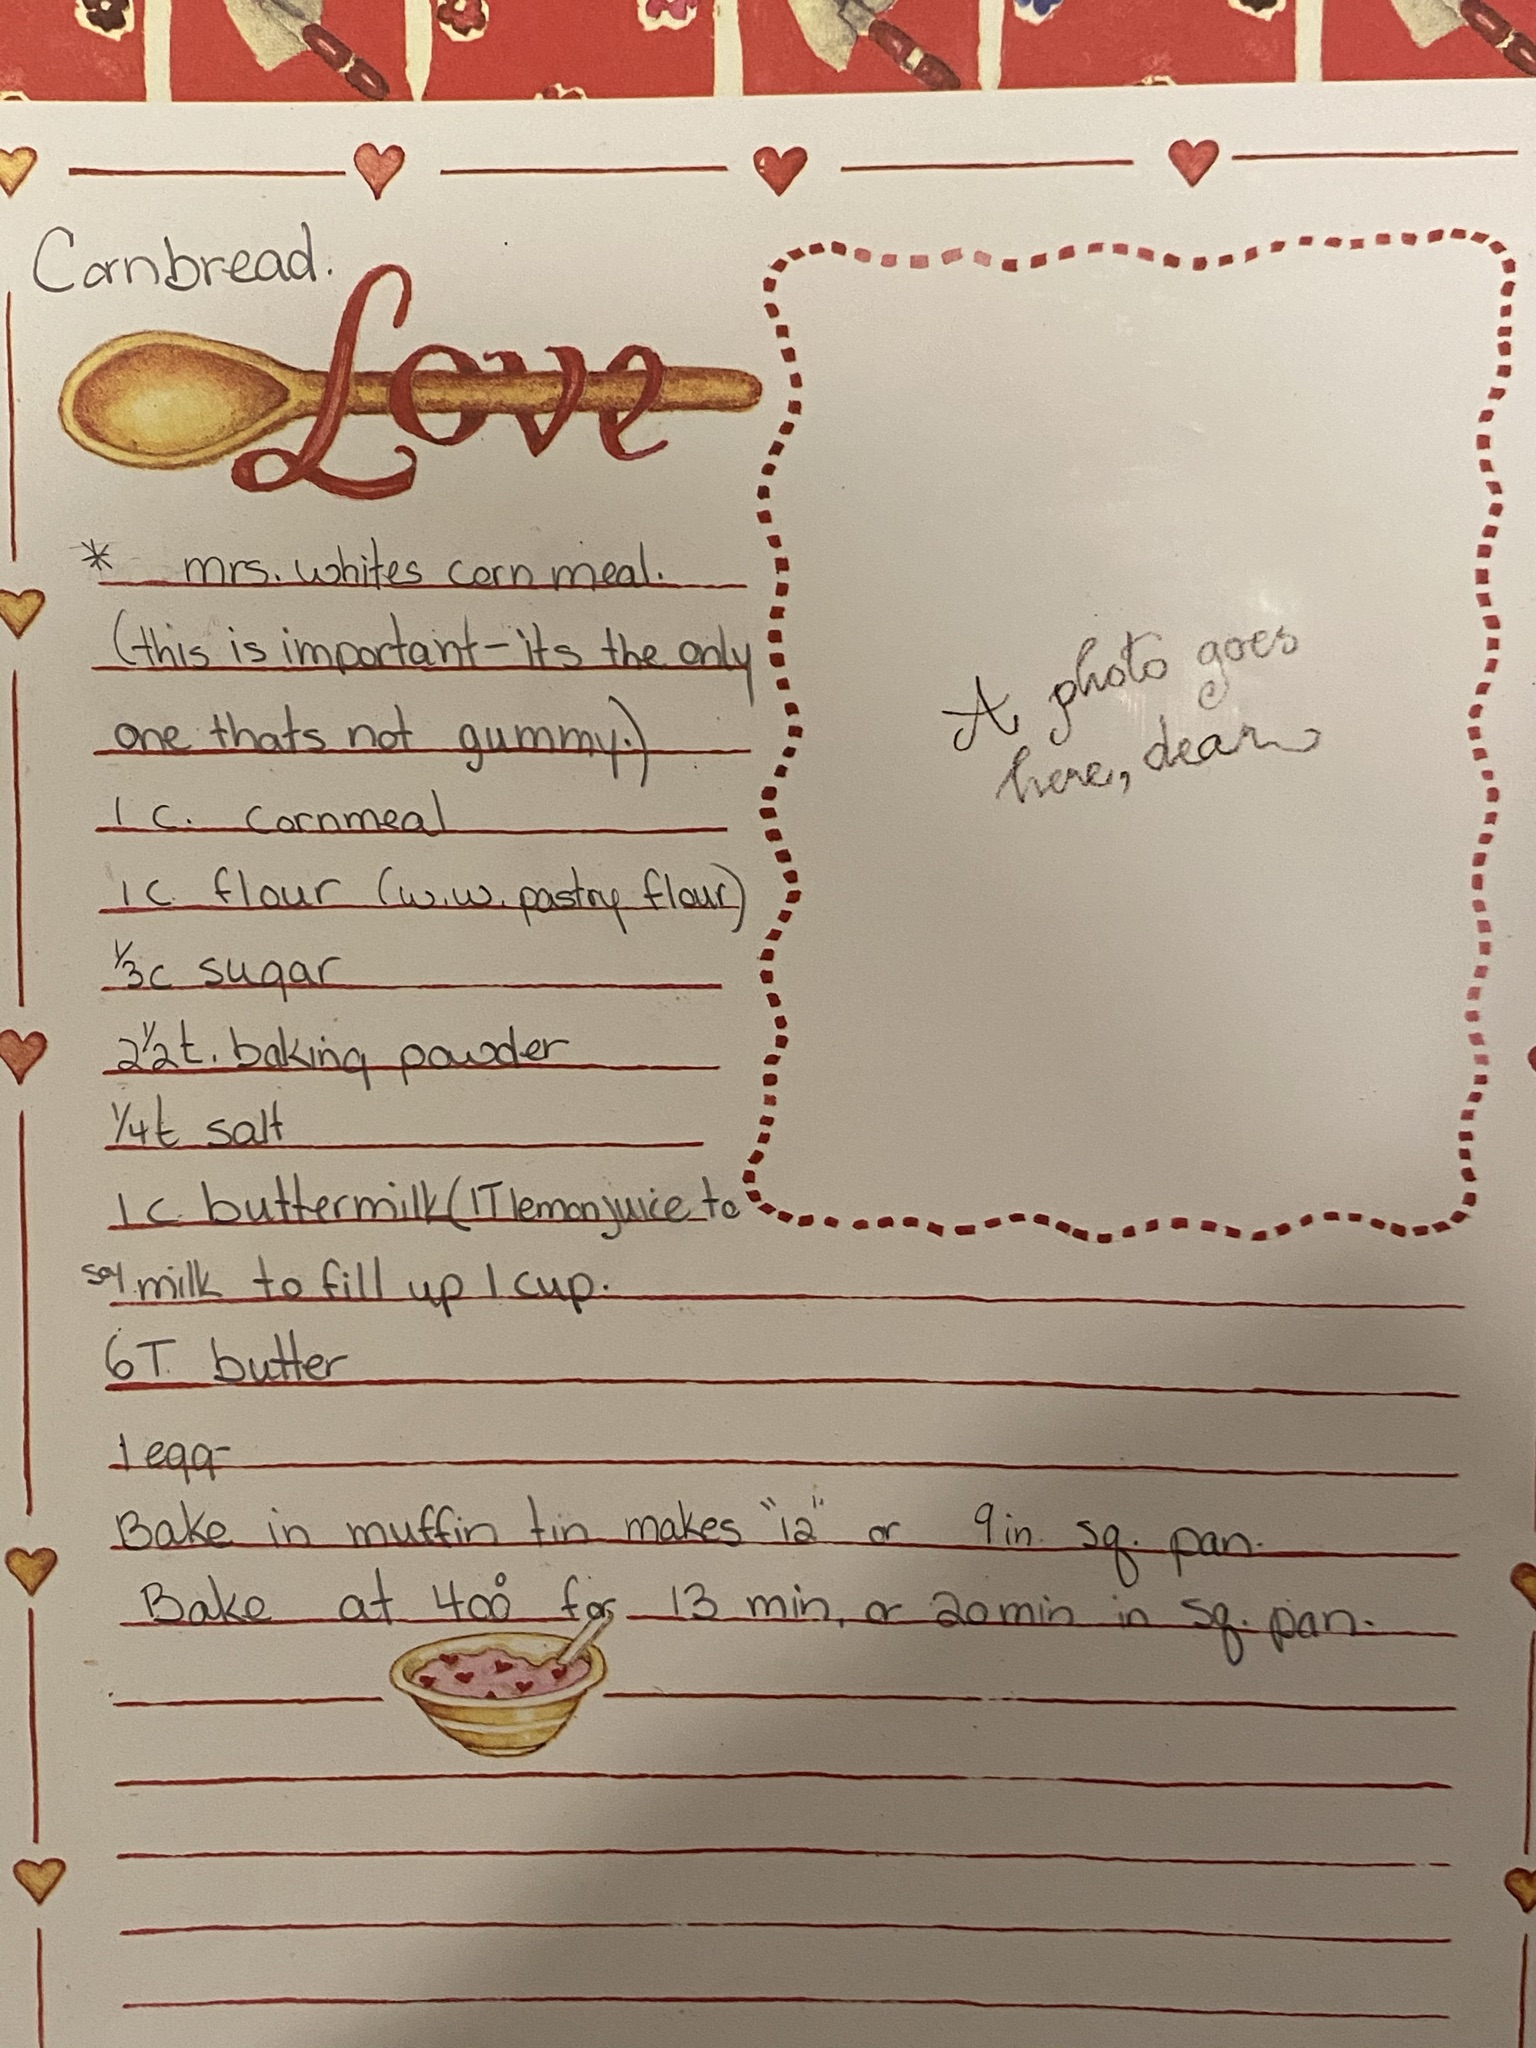 Cornbread.
Love
* mrs. whites corn meal.
(this is important-its the only
one thats not gummy.)
1 c. cornmeal
1 c. flour (w.w. pastry flour)
1/3c sugar
2 1/2 t. baking powder
1/4 t salt
1 c. buttermilk (1T lemon juice to
soy milk to fill up 1 cup.
6 T. butter
1 egg
Bake in muffin tin makes "12" or 9 in. sq. pan.
Bake at 400° for 13 min. or 20 min in sq. pan.
A photo goes
here, dear